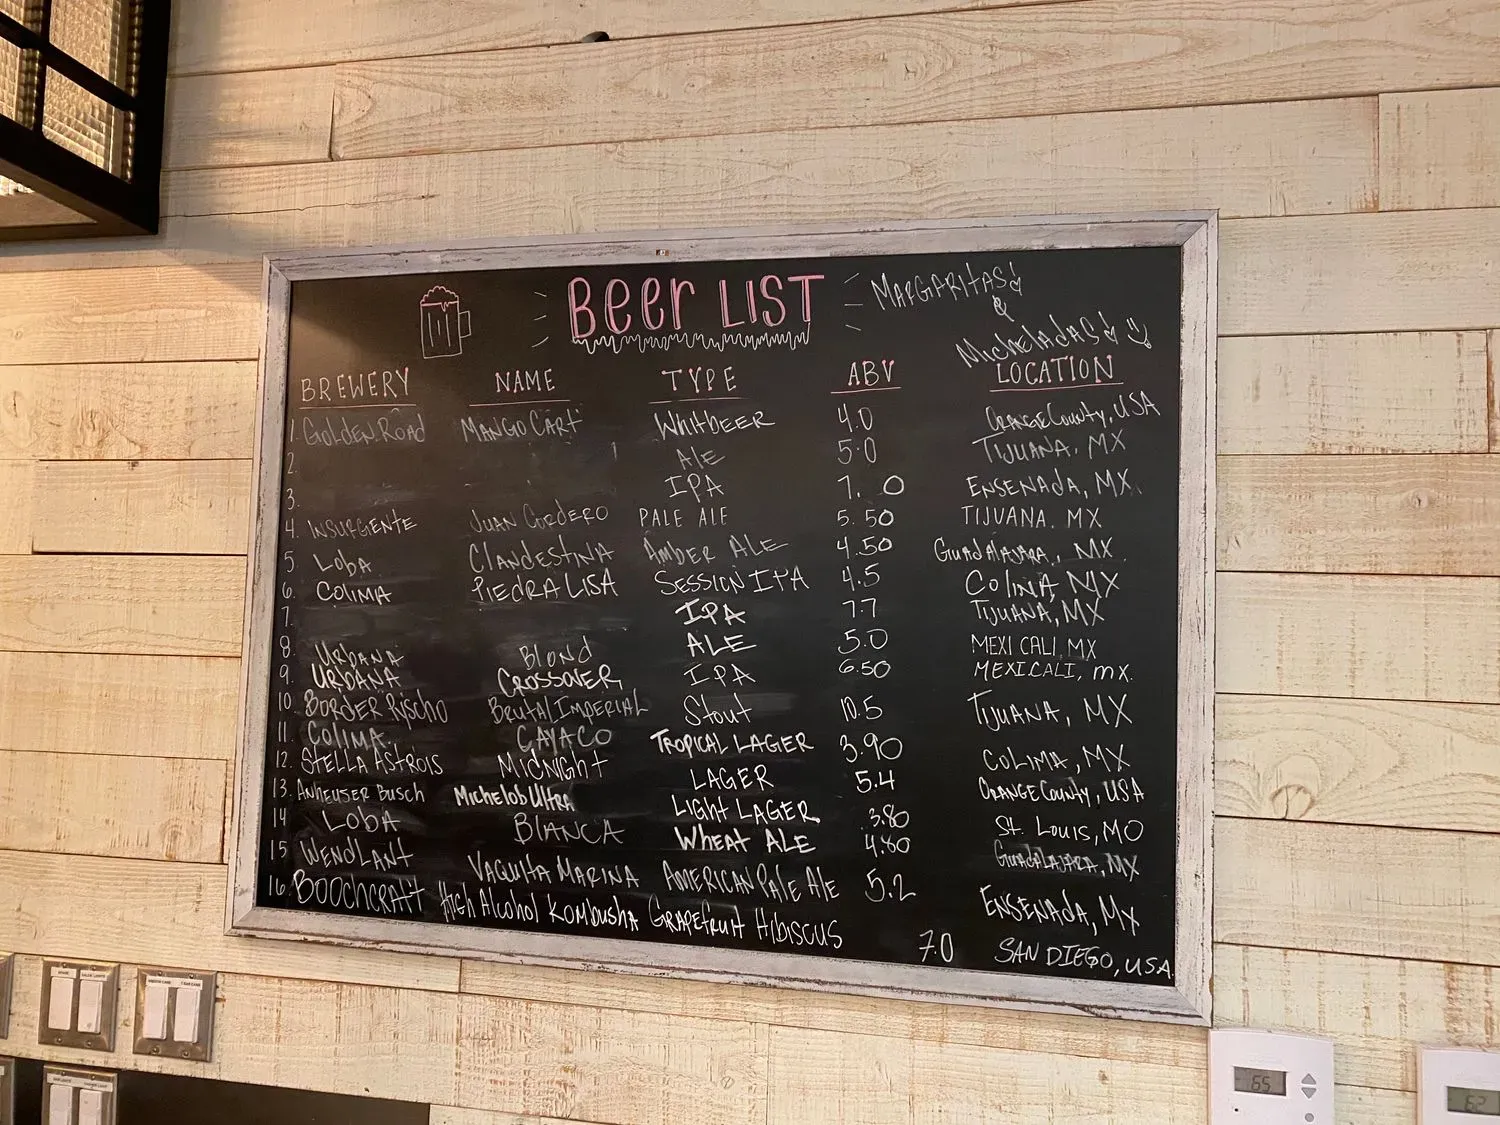 BEER LIST
MARGARITAS!
&
MICHELADAS!
BREWERY NAME TYPE ABV LOCATION
1. GOLDEN ROAD MANGO CART WHITBEER 4.0 ORANGE COUNTY, USA
2. ALE 5.0 TIJUANA, MX
3. IPA 7. 0 ENSENADA, MX
4. INSURGENTE JUAN CORDERO PALE ALE 5.50 TIJUANA. MX
5 LOBA CLANDESTINA AMBER ALE 4.50 GUADALAJARA, MX
6. COLIMA PIEDRA LISA SESSION IPA 4.5 COLIMA, MX
7. IPA 7.7 TIJUANA, MX
8. URBANA BLOND ALE 5.0 MEXICALI, MX
9. URBANA CROSSOVER IPA 6.50 MEXICALI, MX.
10. BORDER PSYCHO BRUTAL IMPERIAL STOUT 10.5 TIJUANA, MX
11. COLIMA. CAYACO TROPICAL LAGER 3.90 COLIMA, MX
12. STELLA ASTROIS MIDNIGHT LAGER 5.4 ORANGE COUNTY, USA
13. ANHEUSER BUSCH MICHELOB ULTRA LIGHT LAGER 3.80 ST. LOUIS, MO
14 LOBA BLANCA WHEAT ALE 4.80 GUADALAJARA, MX
15 WENDLANT VAQUITA MARINA AMERICAN PALE ALE 5.2 ENSENADA, MX
16 BOOCHCRAFT HIGH ALCOHOL KOMBUSHA GRAPEFRUIT HIBISCUS 7.0 SAN DIEGO, USA
65
62